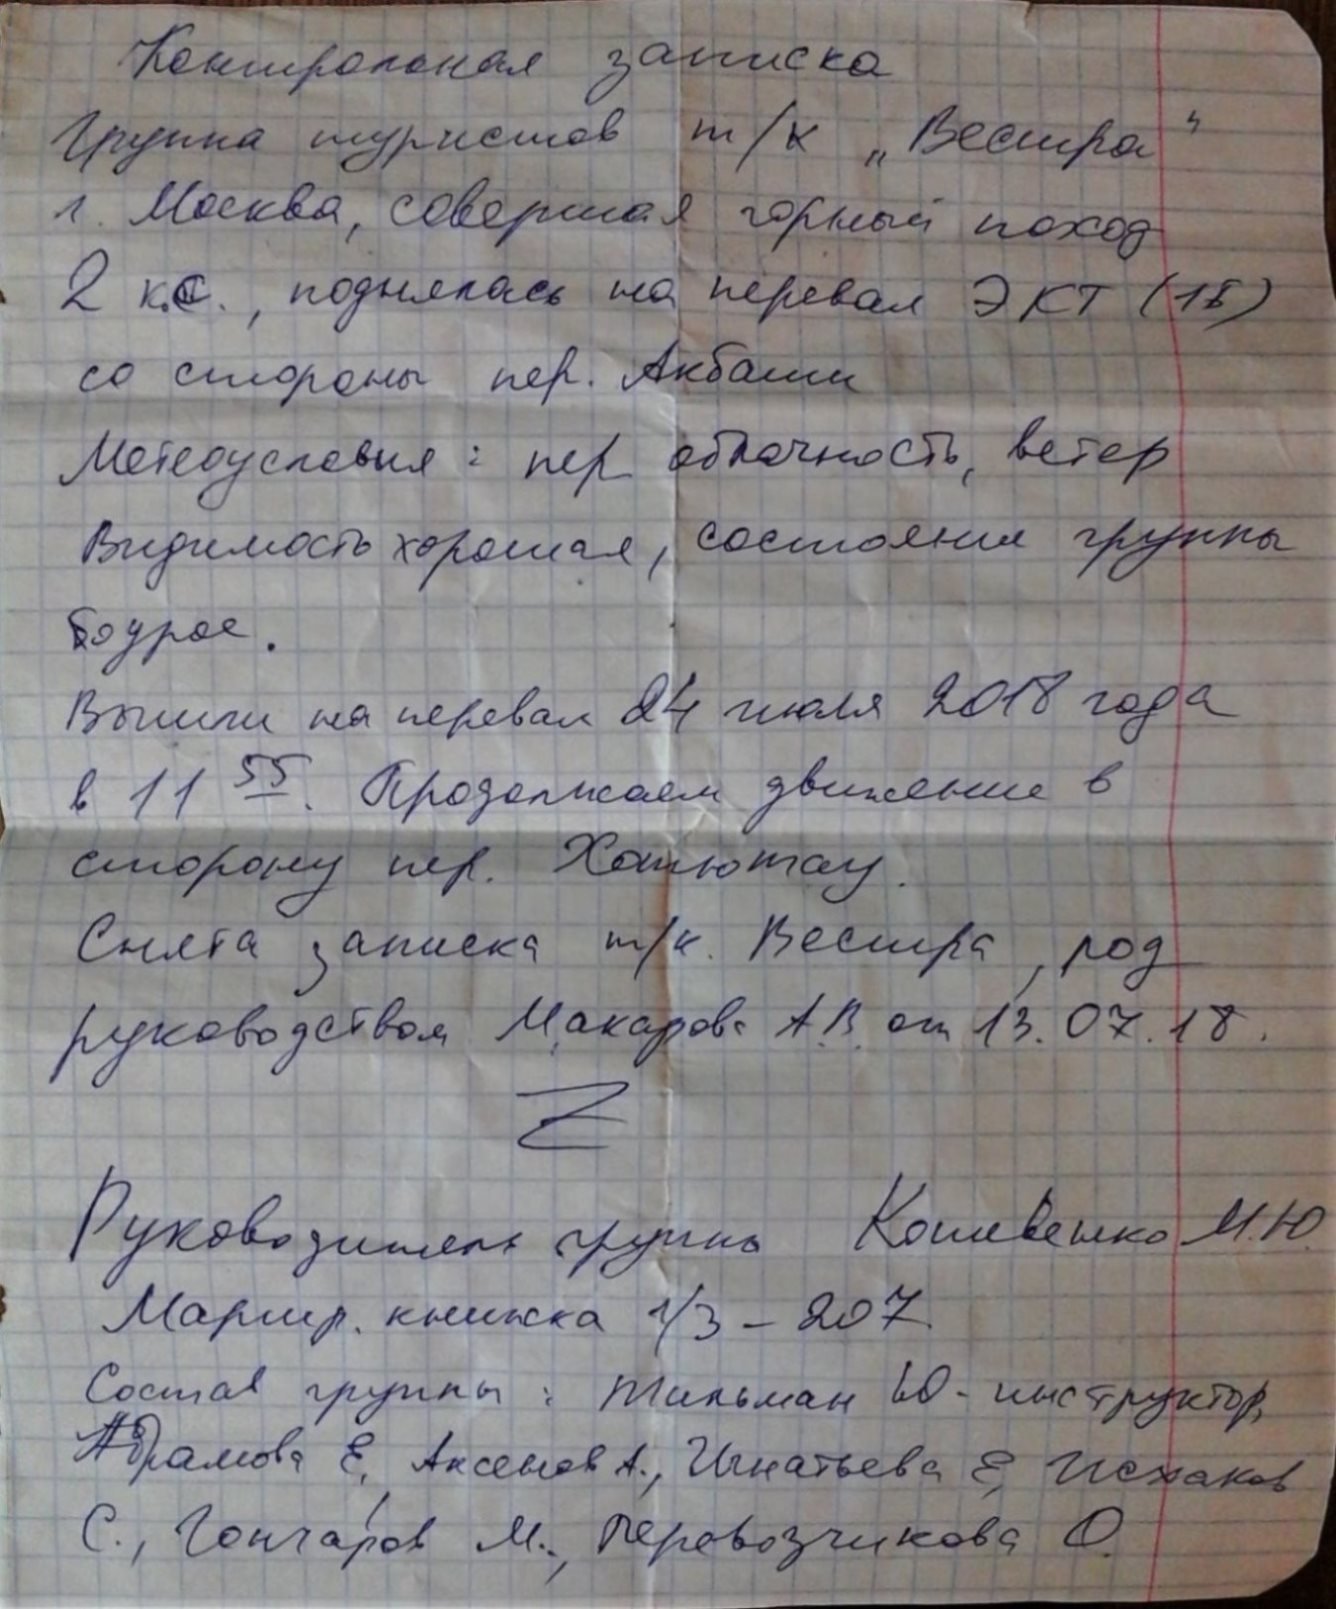 Контрольная записка
Группа туристов т/к „Вестра"
г. Москва, совершая горный поход
2 к.с., поднялась на перевал ЭКТ (1Б)
со стороны пер. Акбаши
Метеоусловия: пер облачность, ветер
Видимость хорошая, состояние группы
бодрое.
Вышли на перевал 24 июля 2018 года
в 11 55. Продолжаем движение в
сторону пер. Хотютау.
Снята записка т/к. Вестра, под
руководством Макарова А.В. от 13.07.18.
Z
Руководитель группы М.Ю.
Маршр. книжка 1/3-207
Состав группы: Тильман Ю - инструктор,
Абрамова Е, Аксенов А., Игнатьева Е, Исхаков
С., Гончаров М., Перевозчикова О.